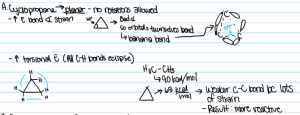 A. Cyclopropane → planar - no rotations allowed
- ↑ E bond ∡ strain
60° → Bad ∡
so orbitals turn selves bond
↳ banana bond
- ↑ torsional E (All C-H bonds eclipse)
H H H
H₃C-CH₃
↳ 90 kcal/mol
△ → 65 kcal/mol → Weaker C-C bond bc lots
of strain
- Result: more reactive